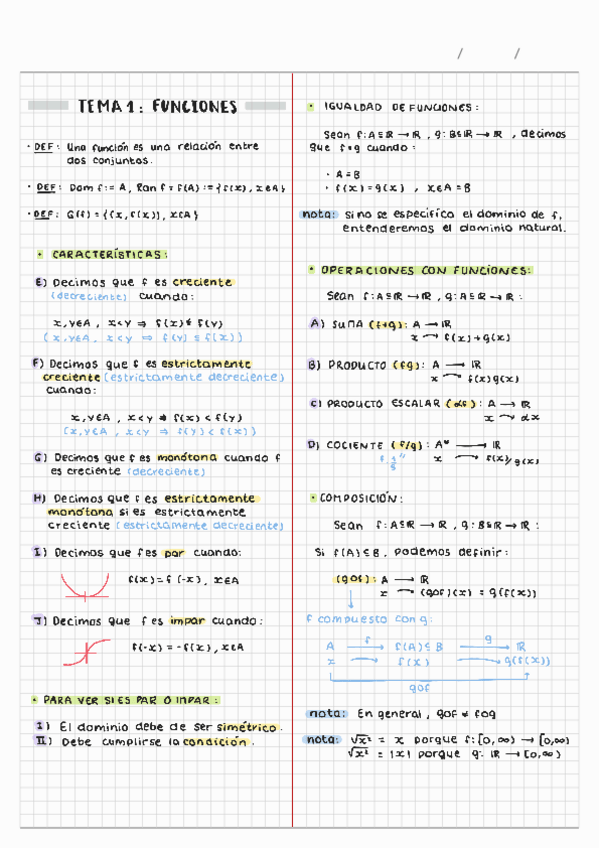 / /
TEMA 1: FUNCIONES
· DEF: Una función es una relación entre
dos conjuntos.
· DEF: Dom f := A, Ran f = f(A) := {f(x), x∈A}
· DEF: G(f) = {(x, f(x)), x∈A}
· CARACTERÍSTICAS:
E) Decimos que f es creciente
(decreciente) cuando:
x,y∈A , x<y ⇒ f(x)≤f(y)
(x,y∈A , x<y ⇒ f(y)≤f(x))
F) Decimos que f es estrictamente
creciente (estrictamente decreciente)
cuando:
x,y∈A , x<y ⇒ f(x)<f(y)
(x,y∈A , x<y ⇒ f(y)<f(x))
G) Decimos que f es monótona cuando f
es creciente (decreciente)
H) Decimos que f es estrictamente
monótona si es estrictamente
creciente (estrictamente decreciente)
I) Decimos que f es par cuando:
f(x) = f(-x), x∈A
J) Decimos que f es impar cuando:
f(-x) = -f(x), x∈A
· PARA VER SI ES PAR O IMPAR:
I) El dominio debe de ser simétrico.
II) Debe cumplirse la condición.
· IGUALDAD DE FUNCIONES:
Sean f:A⊆ℝ → ℝ, g:B⊆ℝ → ℝ , decimos
que f=g cuando:
· A=B
· f(x)=g(x) , x∈A=B
nota: si no se especifica el dominio de f,
entenderemos el dominio natural.
· OPERACIONES CON FUNCIONES:
Sean f:A⊆ℝ → ℝ, g:A⊆ℝ → ℝ :
A) SUMA (f+g): A → ℝ
x → f(x)+g(x)
B) PRODUCTO (fg): A → ℝ
x → f(x)g(x)
C) PRODUCTO ESCALAR (αf): A → ℝ
x → αx
D) COCIENTE (f/g): A* → ℝ
x → f(x)/g(x)
· COMPOSICIÓN:
Sean f:A⊆ℝ → ℝ, g:B⊆ℝ → ℝ :
Si f(A)⊆B, podemos definir:
(gof): A → ℝ
x → (gof)(x) = g(f(x))
f compuesto con g:
A f → f(A)⊆B g → ℝ
x → f(x) → g(f(x))
gof
nota: En general, gof ≠ fog
nota: √x² = x porque f:[0,∞) → [0,∞)
√x² = |x| porque g: ℝ → [0,∞)